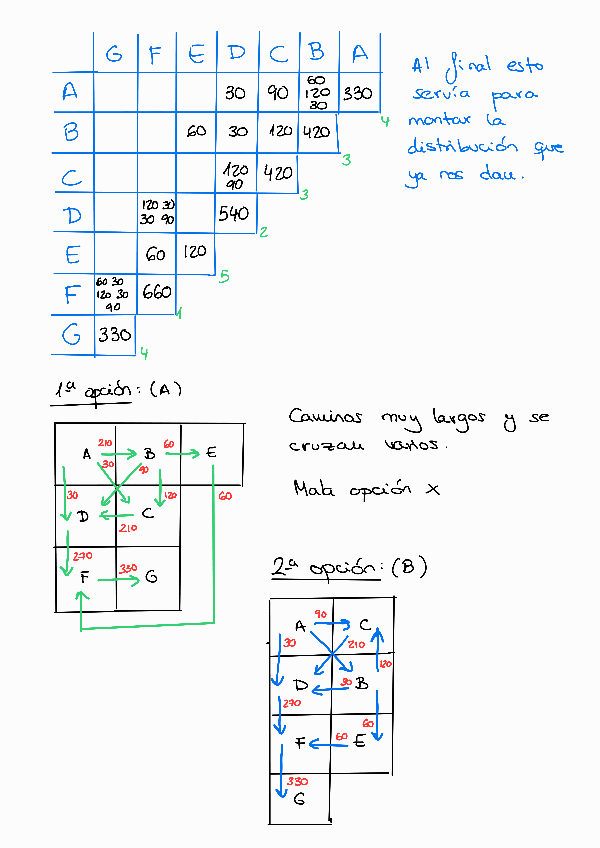 G F E D C B A
A 30 90 60 120 30 330
4
B 60 30 120 420
3
C 120 90 420
3
D 120 30 30 90 540
2
E 60 120
5
F 60 30 120 30 90 660
1
G 330
4
Al final esto
servía para
montar la
distribución que
ya nos dan.
1ª opción: (A)
A 210 B 60 E
30 90
30 120 60
D C
210
270 330
F G
Caminos muy largos y se
cruzan varios.
Mala opción x
2ª opción: (B)
A 90 C
30 210
120
D 30 B
270 60
F 60 E
330
G